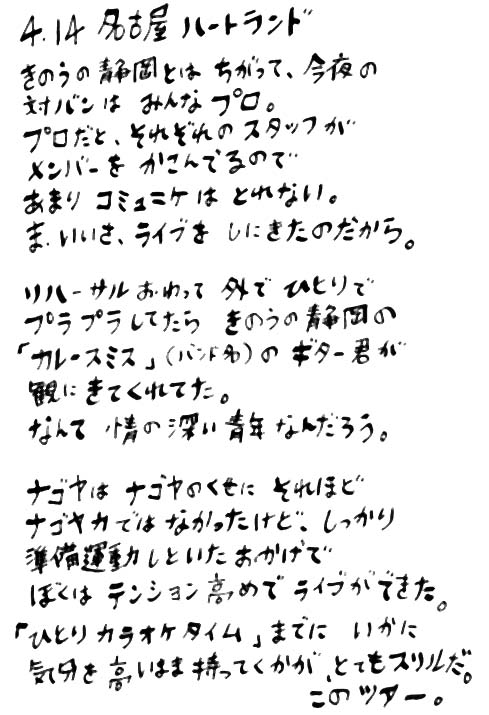 4.14 名古屋 ハートランド
きのうの静岡とは ちがって、今夜の
対バンは みんな プロ。
プロだと、それぞれの スタッフが
メンバーを かこんでるので
あまり コミュニケは とれない。
ま、いいさ、ライブを しにきたのだから。
リハーサル おわって 外で ひとりで
プラプラしてたら きのうの静岡の
「カレースミス」(バンド名)の ギター君が
観に きてくれてた。
なんて 情の深い青年なんだろう。
ナゴヤは ナゴヤのくせに それほど
ナゴヤカではなかったけど、しっかり
準備運動しといたおかげで
ぼくは テンション高めで ライブができた。
「ひとりカラオケタイム」までに いかに
気分を 高いまま 持ってくかが、とてもスリルだ。
このツアー。